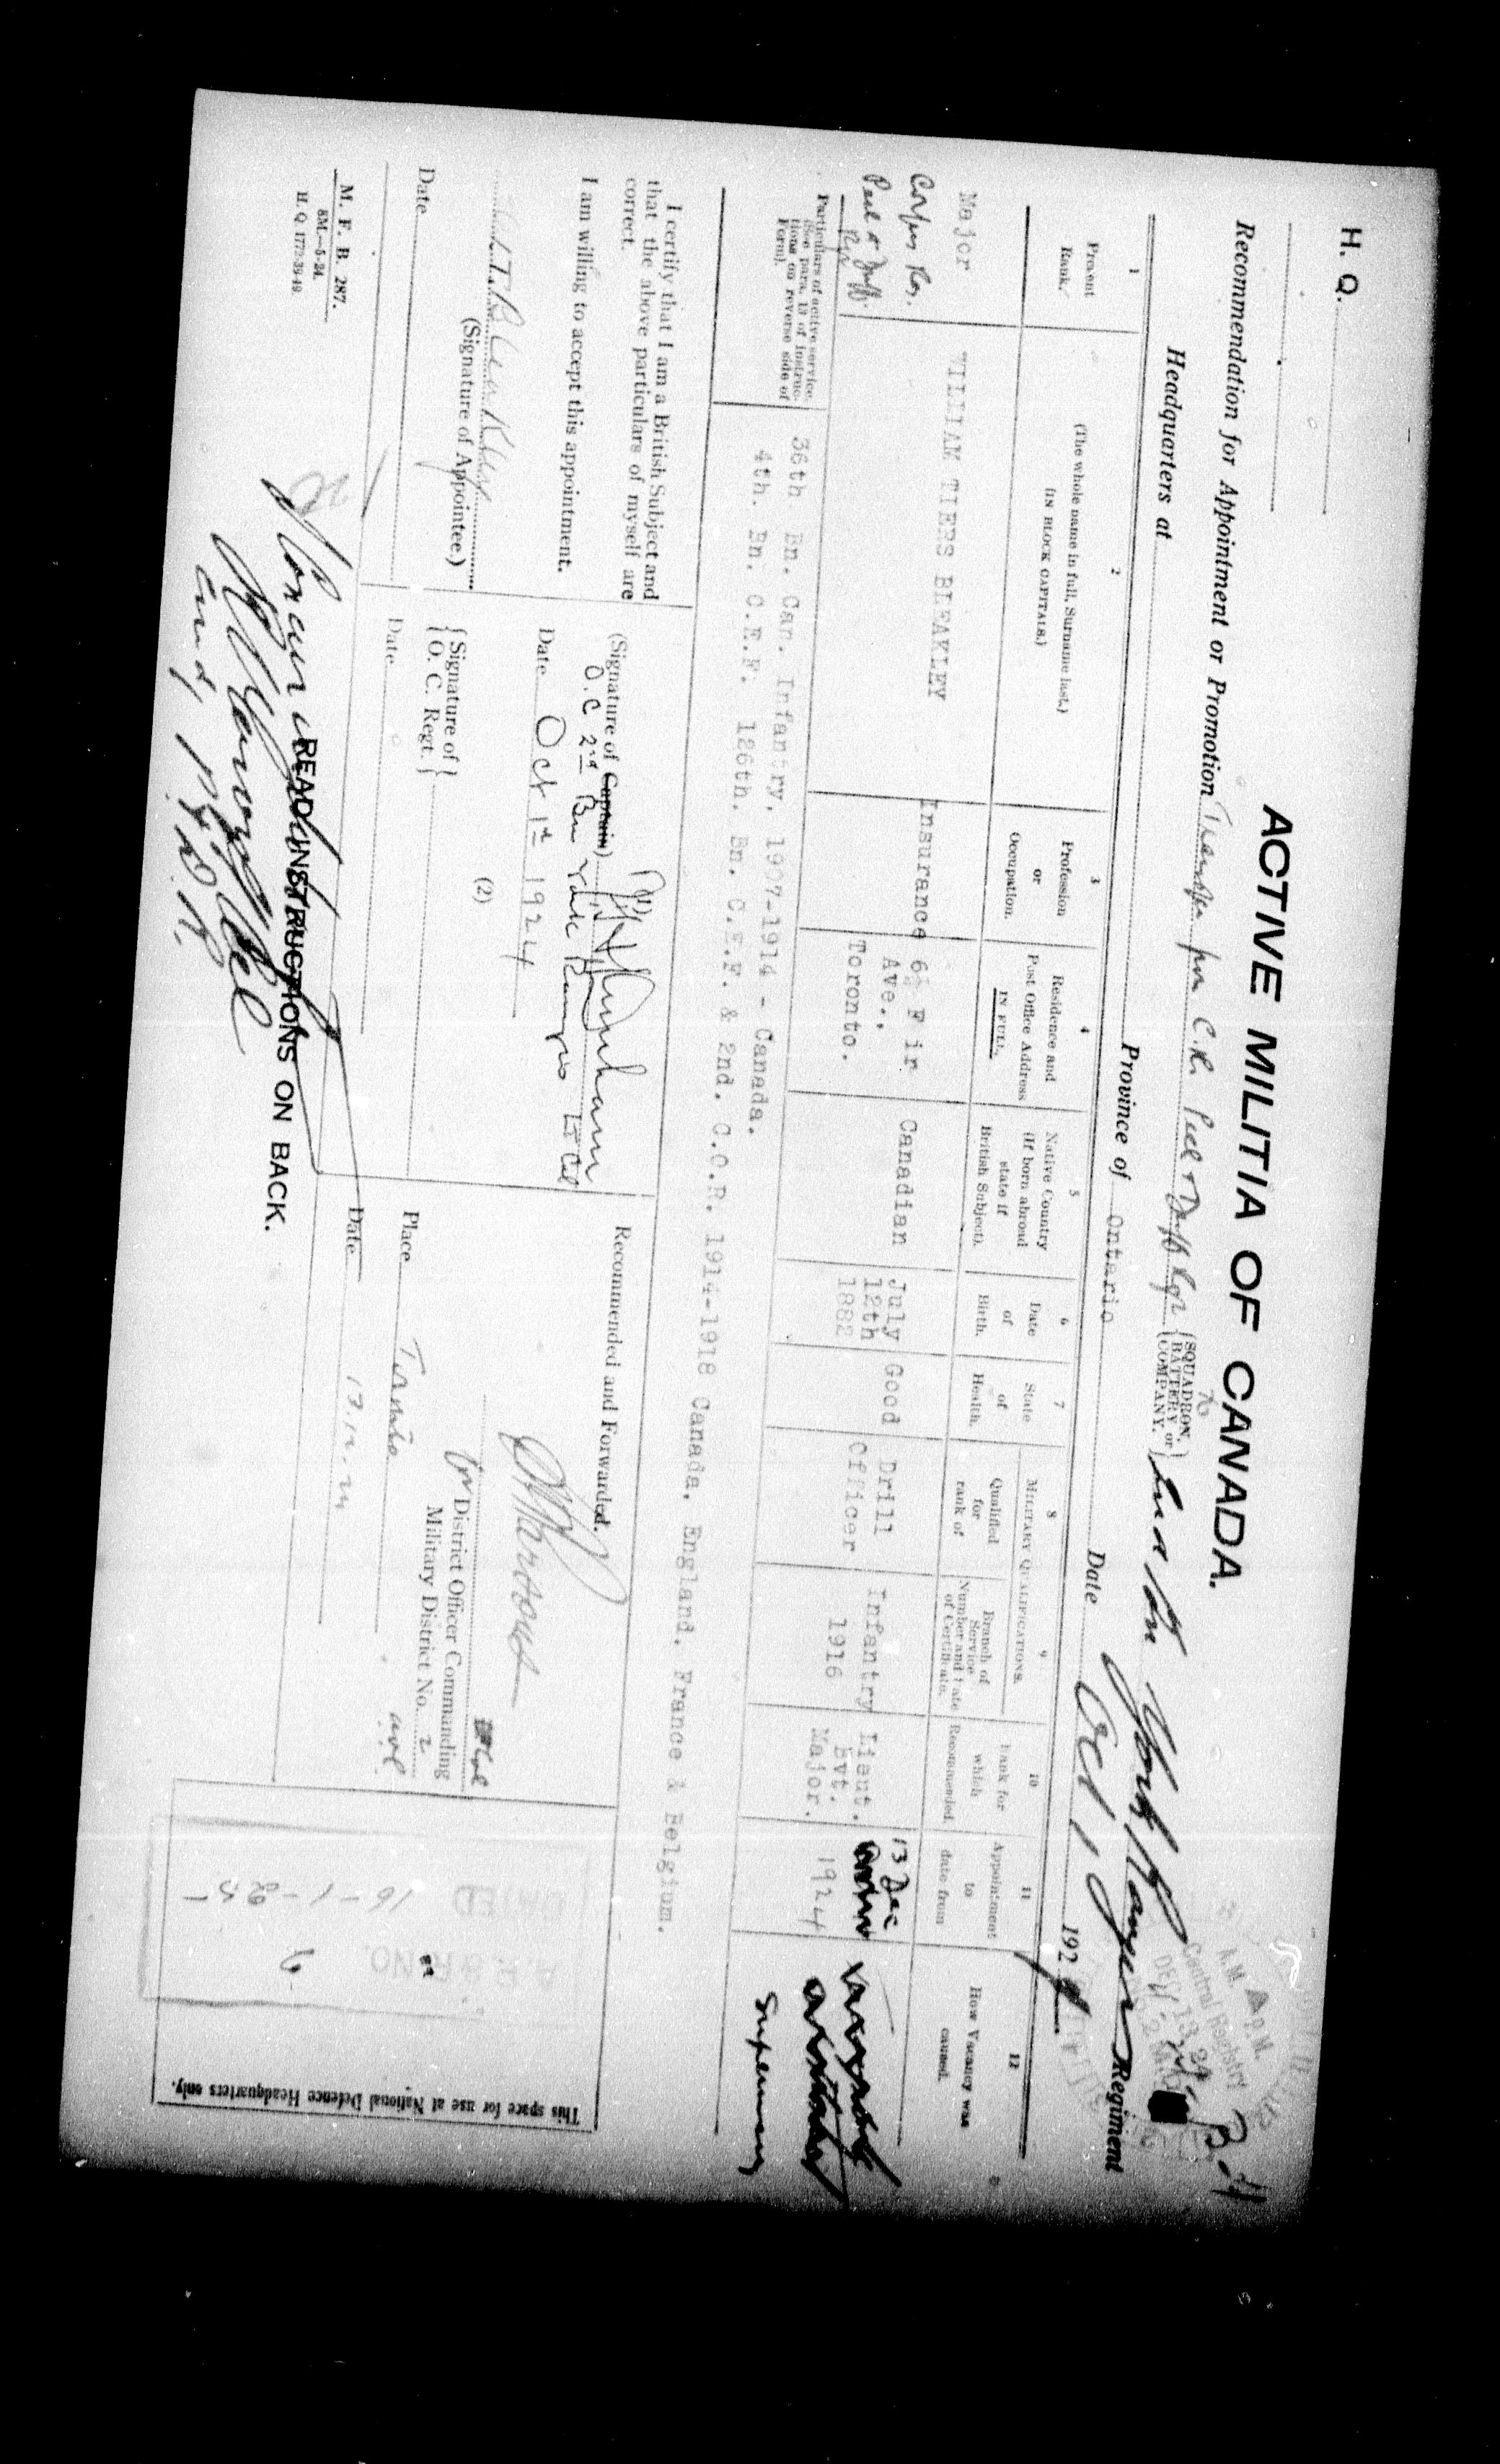 H. Q.
ACTIVE MILITIA OF CANADA.
Recommendation for Appointment or Promotion Transfer from C.R. Peel & Duff Regt {SQUADRON, BATTERY or COMPANY.} 2nd Bn York Rangers Regiment
Headquarters at Province of Ontario Date Oct 1, 1924
A.M. P.M.
Central Registry
DEC. 13, 24
1
Present Rank.
2
(The whole name in full, Surname last.)
(IN BLOCK CAPITALS.)
3
Profession or Occupation.
4
Residence and Post Office Address IN FULL.
5
Native Country (If born abroad state if British Subject).
6
Date of Birth.
7
State of Health.
MILITARY QUALIFICATIONS.
8
Qualified for rank of
9
Branch of Service Number and Date of Certificate.
10
Rank for which Recommended.
11
Appointment to date from
12
How Vacancy was caused.
Major
Corps Res.
Peel & Duff.
Rgt
WILLIAM TIERS BLEAKLEY
Insurance
6½ F ir
Ave.,
Toronto.
Canadian
July
12th
1882
Good
Drill
Officer
Infantry
1916
Lieut.
Bvt.
Major.
13 Dec
1924
Supernumy
Particulars of active service. (See para. 13 of instructions on reverse side of Form).
36th Bn. Can. Infantry, 1907-1914 - Canada.
4th. Bn. C.E.F. 126th. Bn. C.E.F. & 2nd. C.O.R. 1914-1918 Canada, England, France & Belgium.
I certify that I am a British Subject and
that the above particulars of myself are
correct.
I am willing to accept this appointment.
W.T. Bleakley
(Signature of Appointee.)
Date
(1)
(Signature of Captain)
O.C 2nd Bn York Rangers Lt Col
Date Oct 1st 1924
(2)
{Signature of O. C. Regt.}
Date
Recommended and Forwarded.
for District Officer Commanding
Military District No. 2
Place Toronto
Date 13.12.24
DATED 16-1-25
This space for use at National Defence Headquarters only.
M. F. B. 287.
8M.—5-24.
H. Q. 1772-39-49.
READ INSTRUCTIONS ON BACK.